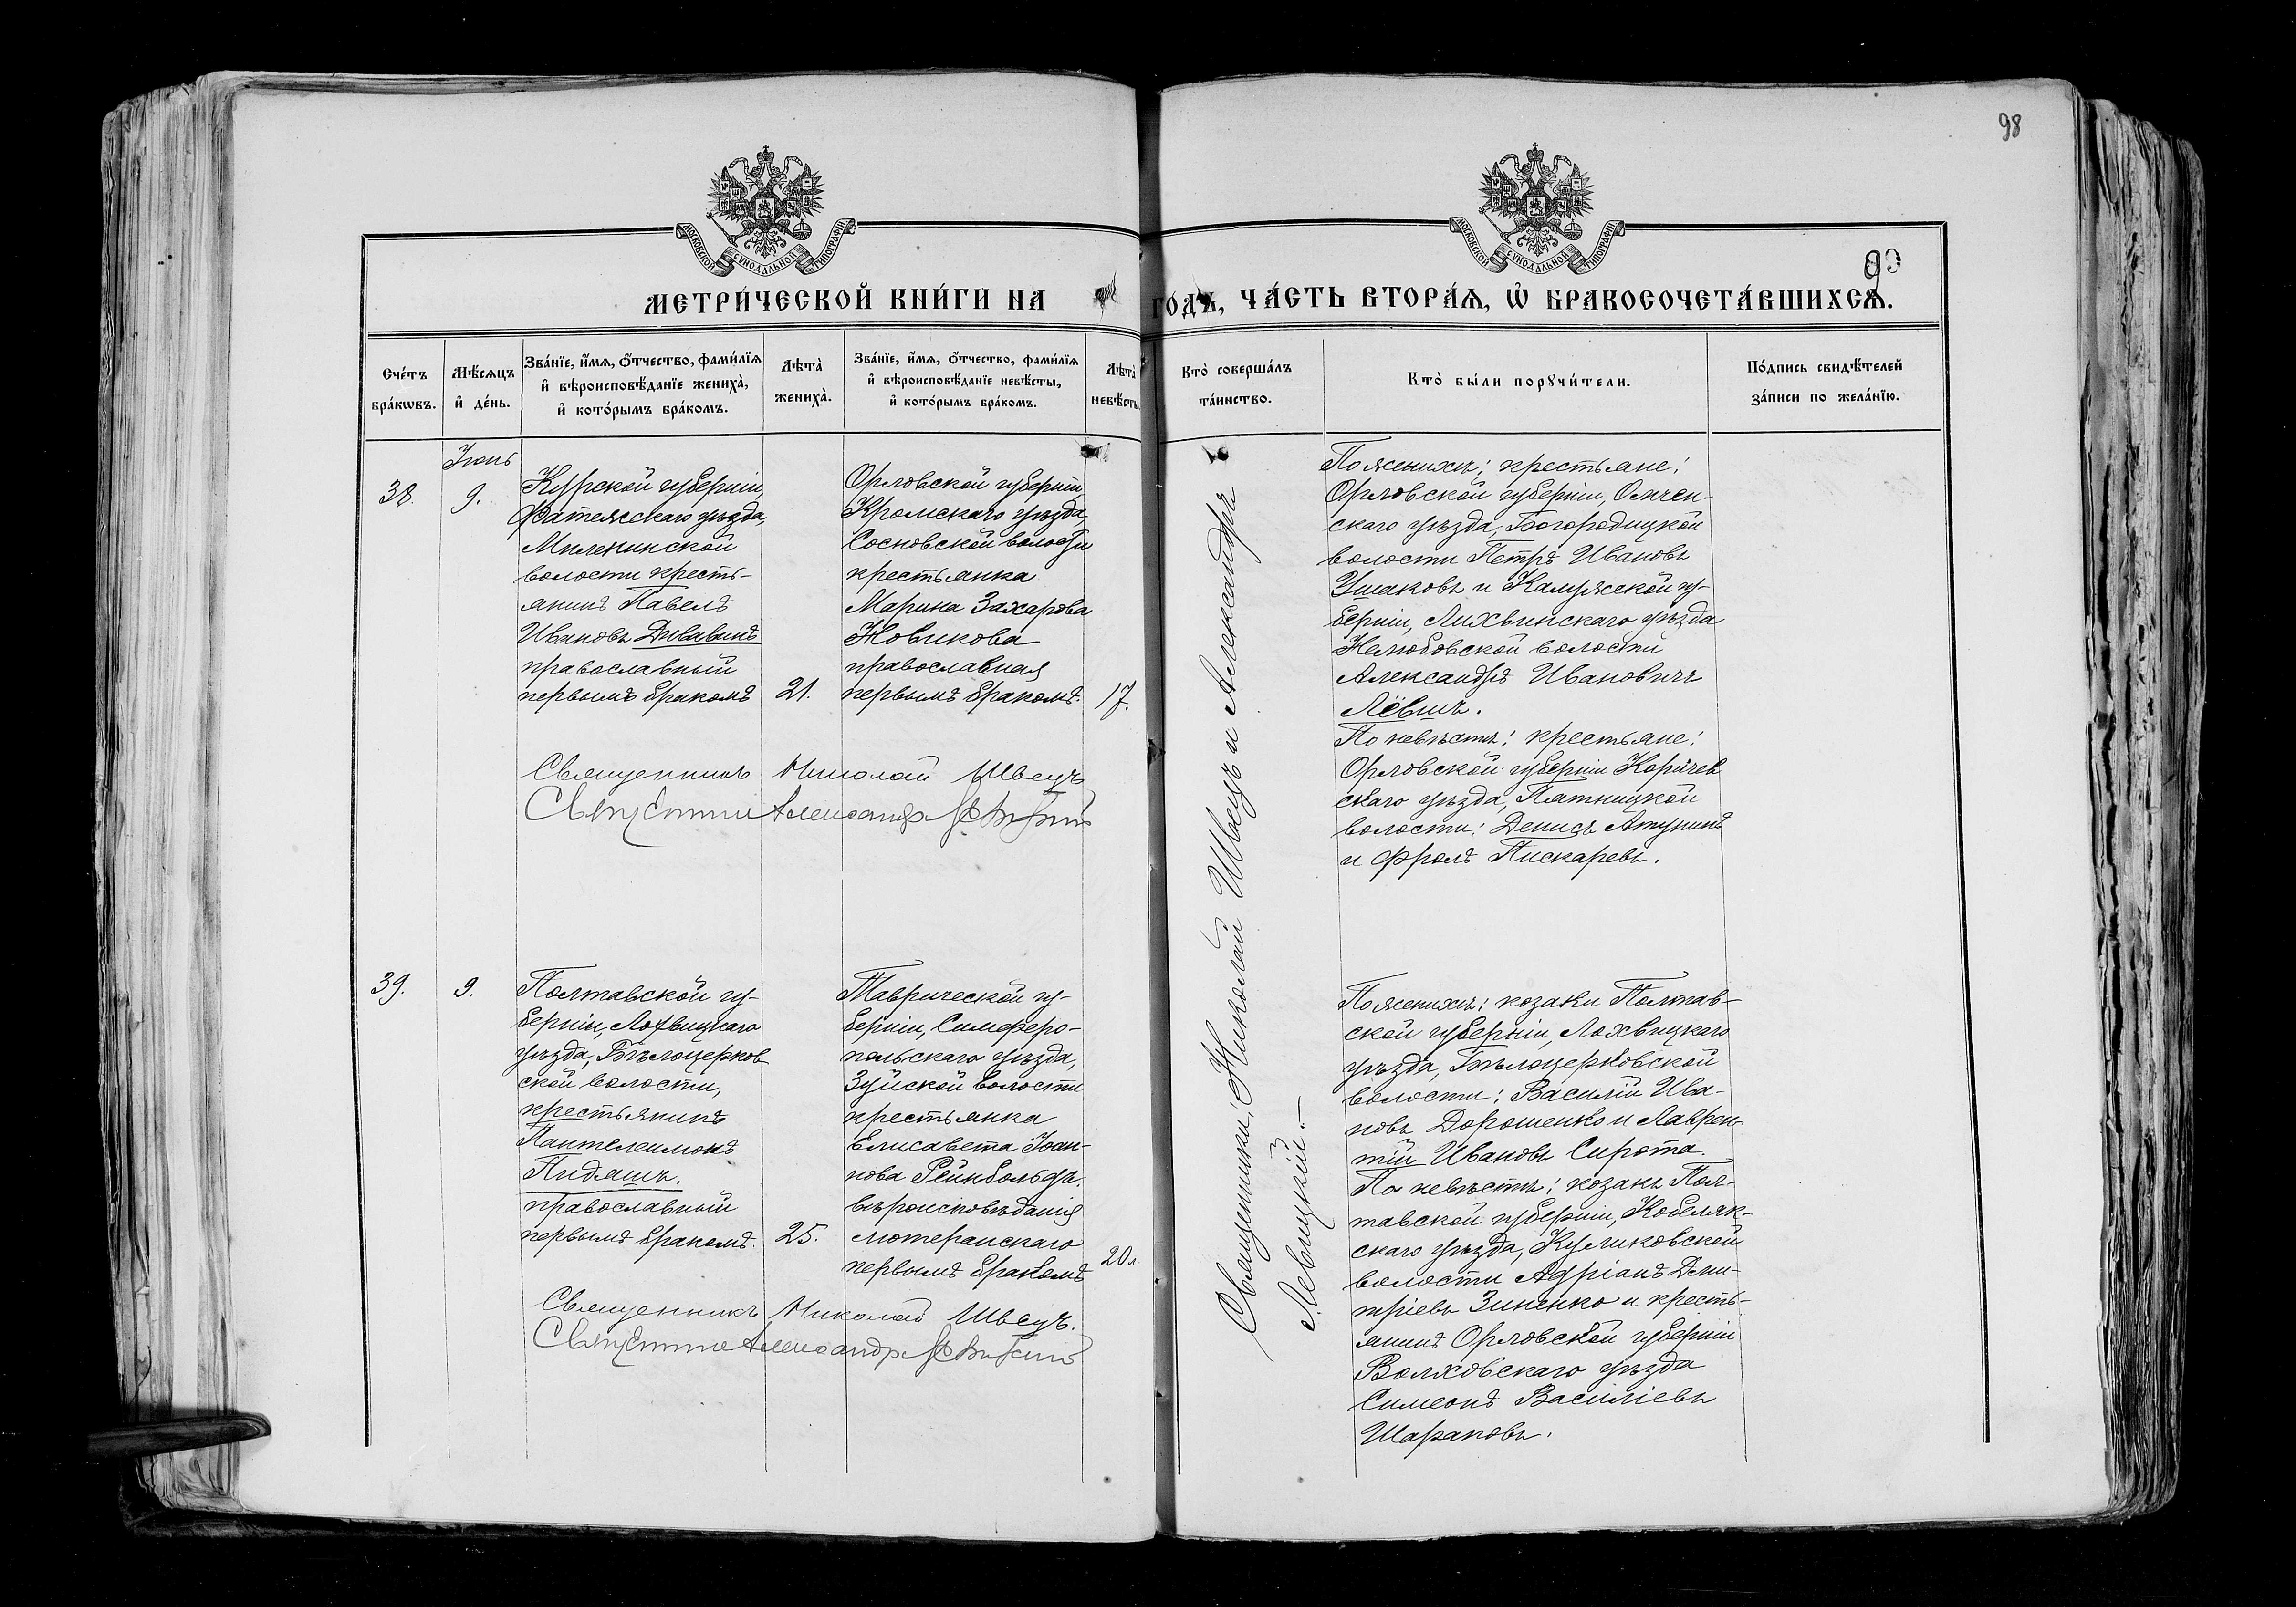 98
МОСКОВСКОЙ СѴНОДАЛЬНОЙ ТИПОГРАФІИ
МОСКОВСКОЙ СѴНОДАЛЬНОЙ ТИПОГРАФІИ
МЕТРИ́ЧЕСКОЙ КНИ́ГИ НА
ГО́ДЪ, ЧА́СТЬ ВТОРА́Я, Ѡ҆ БРАКОСОЧЕТА́ВШИХСѦ.
Сче́тъ бра́кѡвъ.
Мѣ́сяцъ и҆ де́нь.
Зва́нїе, и҆́мѧ, о҆́тчество, фами́лїѧ
и҆ вѣроисповѣ́данїе жениха̀,
и҆ кото́рымъ бра́комъ.
Лѣта̀ жениха̀.
Зва́нїе, и҆́мѧ, о҆́тчество, фами́лїѧ
и҆ вѣроисповѣ́данїе невѣ́сты,
и҆ кото́рымъ бра́комъ.
Лѣта̀ невѣ́сты
Кто̀ соверша́лъ
та́инство.
Кто̀ бы́ли порꙋчи́тели.
По́дпись свидѣ́телей
за́писи по жела́нїю.
38.
Іюнь
9.
Курской губерніи,
Фатежскаго уѣзда,
Миленинской
волости кресть-
янинъ Павелъ
Ивановъ Дивавинъ
православный
первымъ бракомъ
21.
Орловской губерніи,
Кромскаго уѣзда,
Сосковской волости
крестьянка
Марина Захарова
Новикова
православная
первымъ бракомъ.
17.
Священникъ Николай Швецъ
Священникъ Александръ Левицкій
Священники: Николай Швецъ и Александръ
Левицкій.—
По женихѣ: крестьяне:
Орловской губерніи,
скаго уѣзда, Богородицкой
волости Петръ Ивановъ
Ушаковъ и Калужской гу-
берніи, Лихвинскаго уѣзда
Нелюбовской волости
Александръ Ивановичъ
Лёвшъ.
По невѣстѣ: крестьяне:
Орловской губерніи Карачев
скаго уѣзда, Пятницкой
волости: Денисъ
и Фролъ Пискаревъ.
39.
9.
Полтавской гу-
берніи, Лохвицкаго
уѣзда, Бѣлоцерков
ской волости,
крестьянинъ
Пантелеимонъ
Пидашъ.
православный
первымъ бракомъ.
25.
Таврической гу-
берніи, Симферо-
польскаго уѣзда,
Зуйской волости
крестьянка
Елисавета Іоан-
нова Рейнбольдъ.
вѣроисповѣданія
лютеранскаго
первымъ бракомъ
20 л.
Священникъ Николай Швецъ.
Священникъ Александръ Левицкій
По женихѣ: козаки Полтав-
ской губерніи, Лохвицкаго
уѣзда, Бѣлоцерковской
волости: Василій Ива-
новъ Дорошенко и Лаврен-
тій Ивановъ Сирота.
По невѣстѣ: козакъ Пол-
тавской губерніи, Кобеляк-
скаго уѣзда, Куликовской
волости Адріанъ Дми-
тріевъ Зиненко и кресть-
янинъ Орловской губерніи
Волховскаго уѣзда
Симеонъ Василіевъ
Шарановъ.